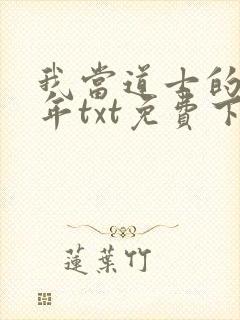 我當道士的
年txt免費下
蓮葉竹